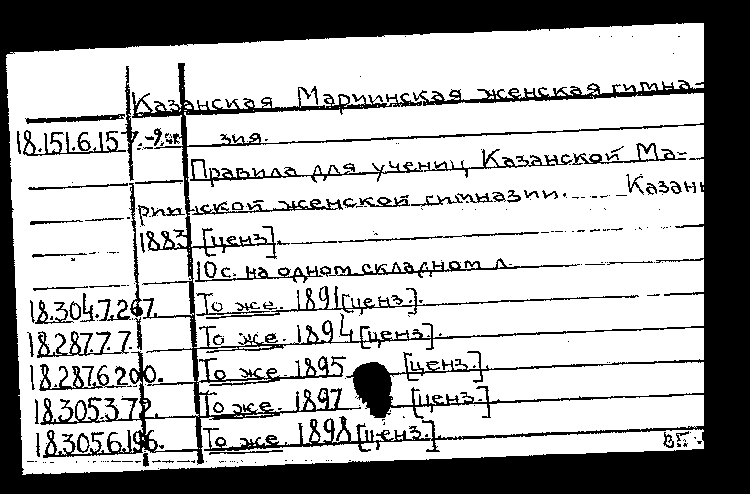 Казанская Мариинская женская гимна-
18.151.6.157. зия.
Правила для учениц Казанской Ма-
риинской женской гимназии. Казань
1883 [ценз].
10 с. на одном складном л.
18.304.7.267. То же. 1891 [ценз.].
18.287.7.7. То же. 1894 [ценз.].
18.287.6.200. То же. 1895 [ценз.].
18.305.3.72. То же. 1897 [ценз.].
18.305.6.196. То же. 1898 [ценз.].